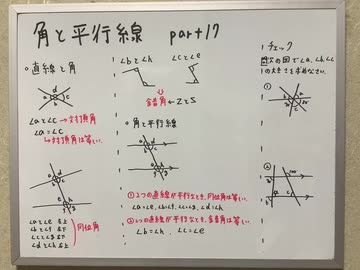 角と平行線 part17
○直線と角
a d
b c
∠aと∠c → 対頂角
∠a=∠c
↳対頂角は等しい。
∠aと∠e 左上
右上
同位角
∠bと∠h ∠cと∠e
錯角 ← ZとS
○角と平行線
①2つの直線が平行なとき、同位角は等しい
∠a=∠e, ∠b=∠f, ∠c=∠g, ∠d=∠h
②2つの直線が平行なとき、錯角は等しい。
∠b=∠h , ∠c=∠e
チェック
次の図で∠a、∠b、∠c
の大きさを求めなさい。
①
②